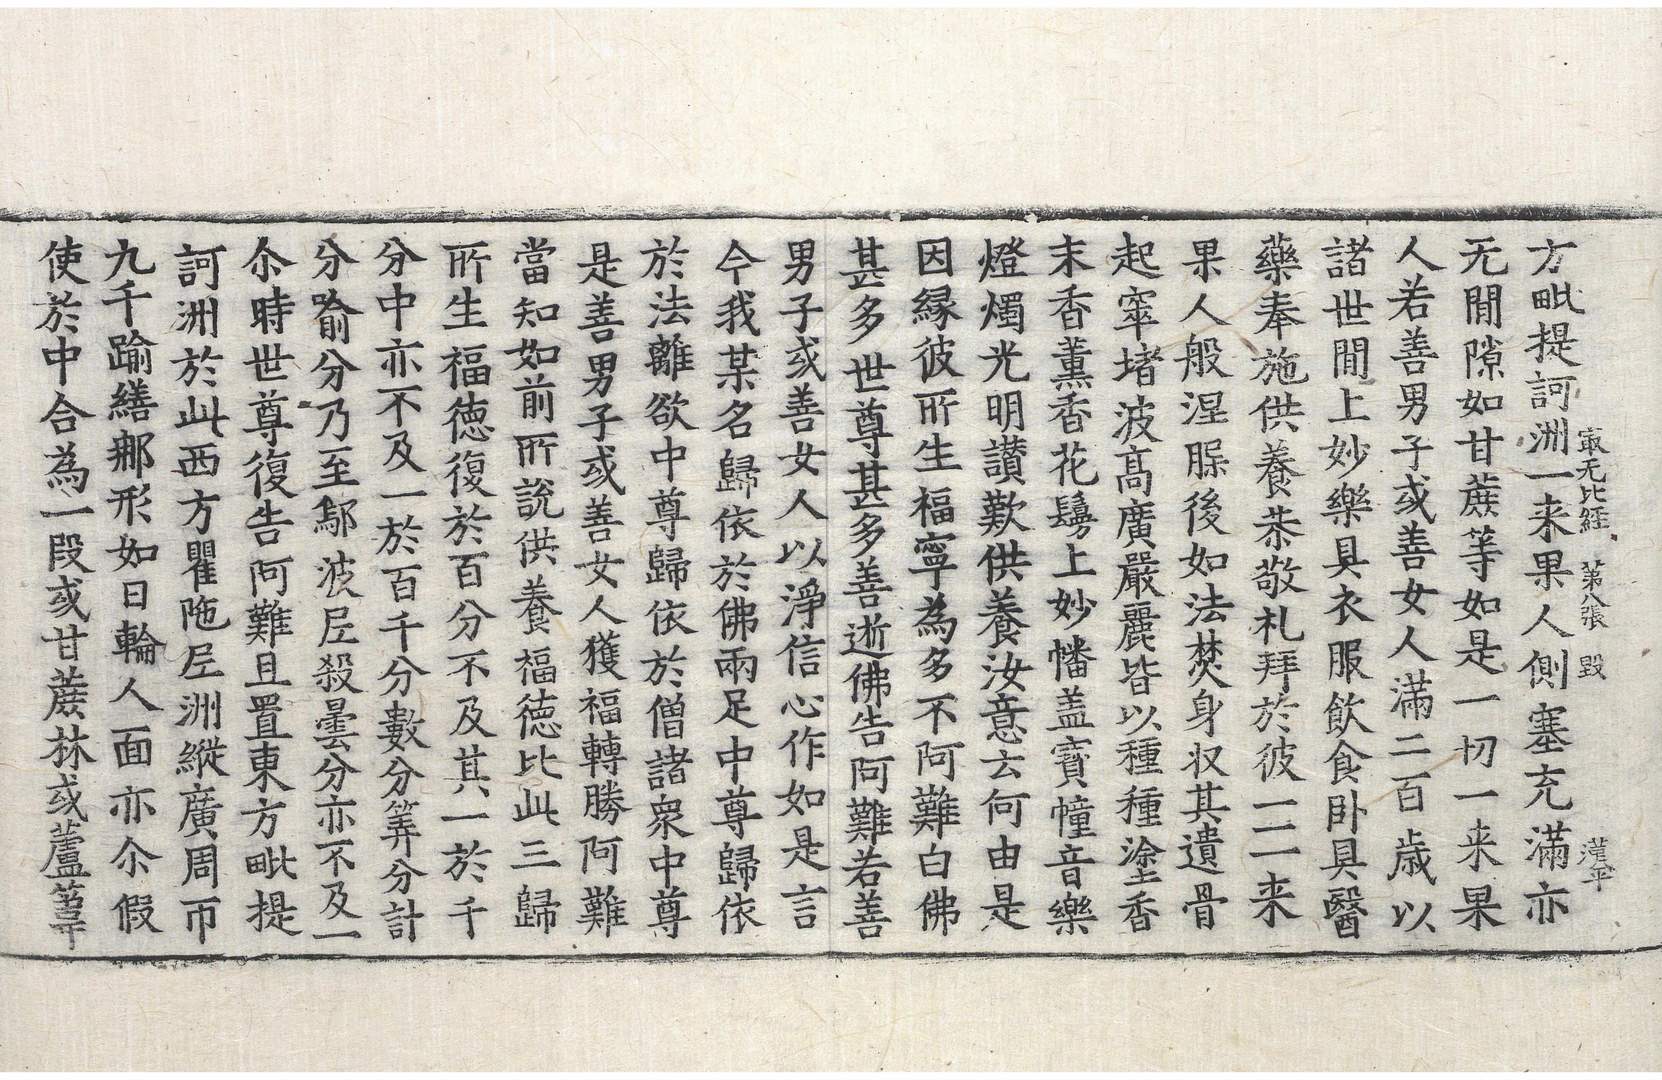 㝡无比経　第八張　毀　漢平
方毗提訶洲一来果人側塞充滿亦
无間隙如甘蔗等如是一切一来果
人若善男子或善女人滿二百歲以
諸世間上妙樂具衣服飲食卧具醫
藥奉施供養恭敬礼拜於彼一一来
果人般涅脲後如法焚身収其遺骨
起窣堵波髙廣嚴麗皆以種種塗香
末香薰香花鬘上妙幡盖寳幢音樂
燈燭光明讃歎供養汝意云何由是
因縁彼所生福寧為多不阿難白佛
甚多世尊甚多善逝佛告阿難若善
男子或善女人以淨信心作如是言
今我某名歸依於佛兩足中尊歸依
於法離欲中尊歸依於僧諸衆中尊
是善男子或善女人獲福轉勝阿難
當知如前所說供養福徳比此三歸
所生福徳復於百分不及其一於千
分中亦不及一於百千分數分筭分計
分喻分乃至鄔波尼殺曇分亦不及一
尒時世尊復告阿難且置東方毗提
訶洲於此西方瞿陁尼洲縱廣周帀
九千踰繕那形如日輪人面亦尒假
使於中合為一段或甘蔗林或蘆葦